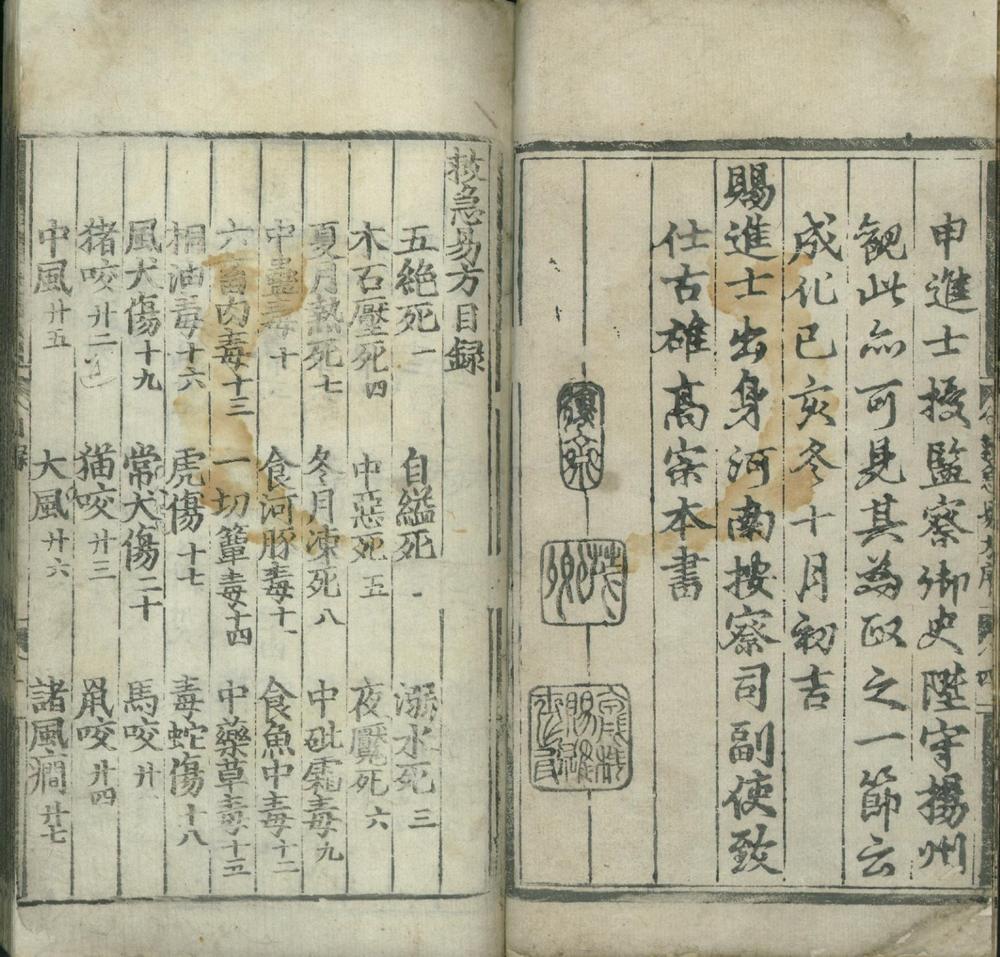 申進士授監察御史陞守揚州
觀此亦可見其為政之一節云
成化己亥冬十月初吉
賜進士出身河南按察司副使致
仕古雄高宗本書
救急易方目録
五絶死一 自縊死 溺水死三
木石壓死四 中惡死五 夜魘死六
夏月熱死七 冬月凍死八 中砒霜毒九
中蠱毒十 食河豚毒十一 食魚中毒十二
六畜肉毒十三 一切簟毒十四 中藥草毒十五
桐油毒十六 虎傷十七 毒蛇傷十八
風犬傷十九 常犬傷二十 馬咬廿一
猪咬廿二 猫咬廿三 鼠咬廿四
中風廿五 大風廿六 諸風癇廿七